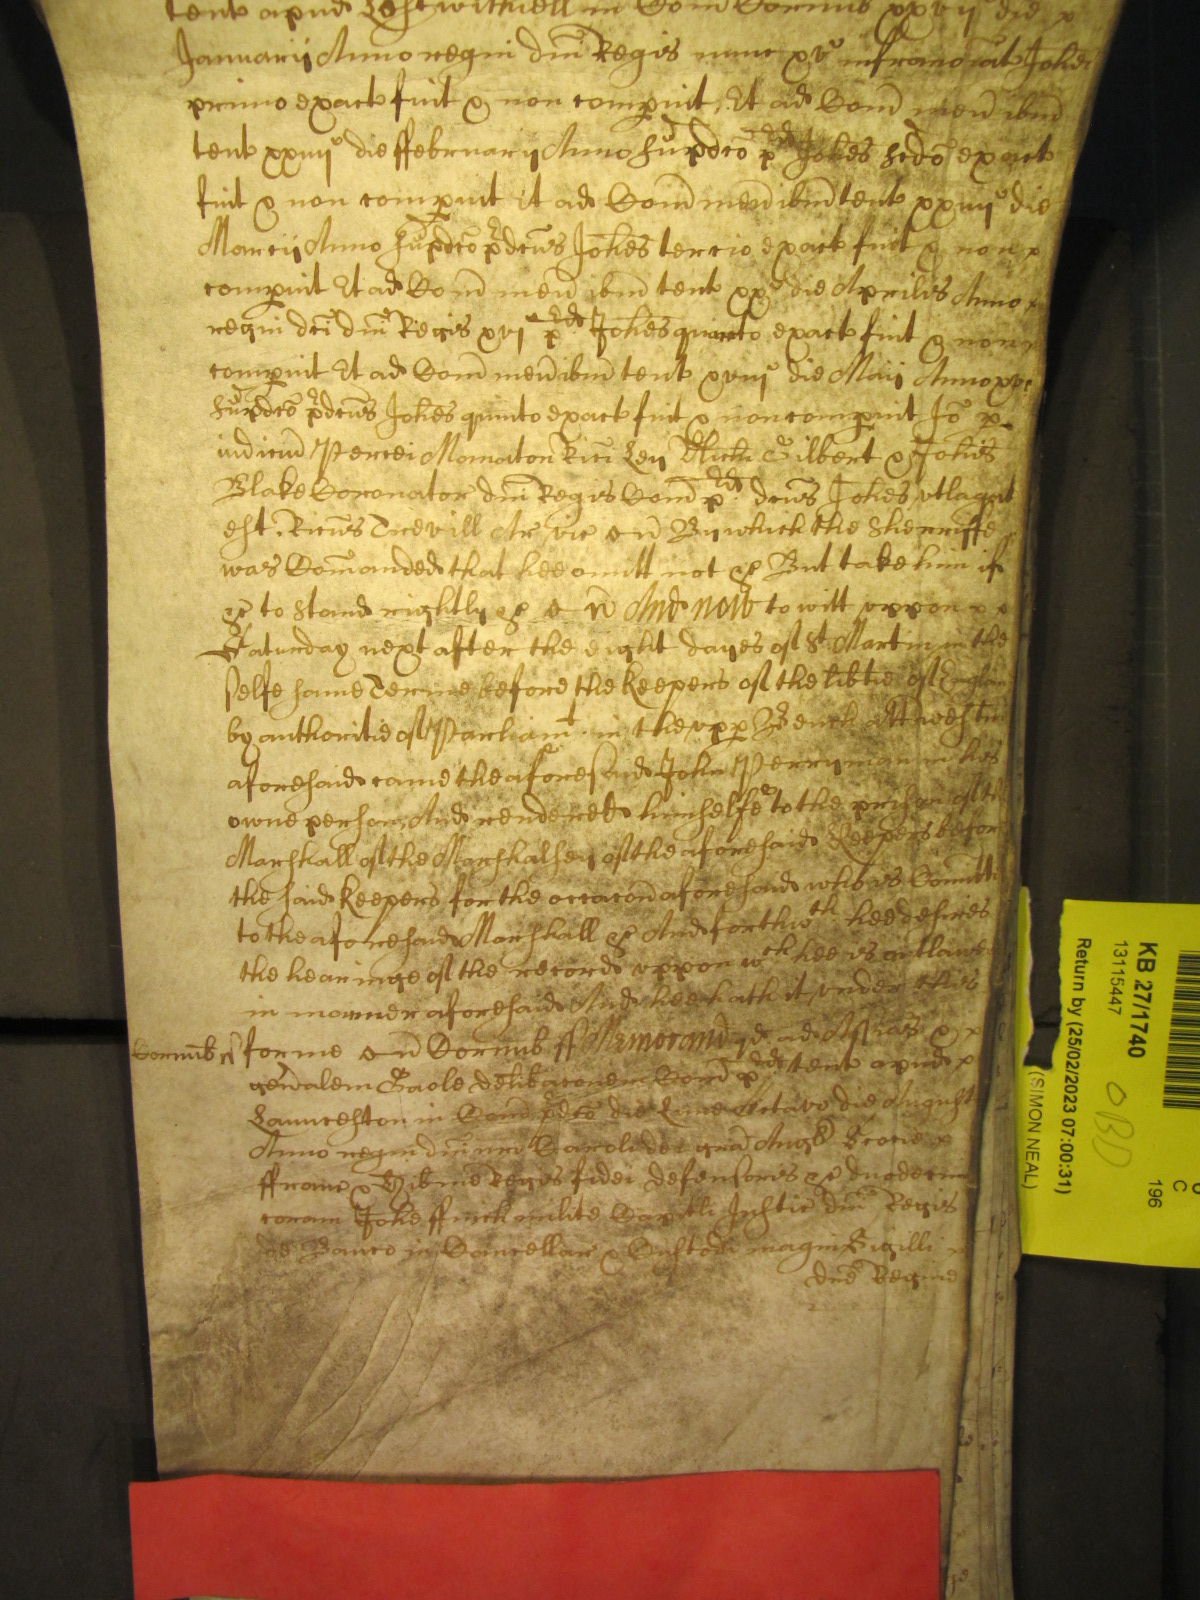 tent apud Lostwithiell in Com Cornub xxvij die
Januarij Anno regni dni Regis nunc xv infranoiat Johes
primo exact fuit & non compuit, Et ad Com meu ibm
tent xxiiij die ffebruarij Anno supdco pd Johes scdo exact
fuit & non compuit Et ad Com meu ibm tent xxiiij die
Marcij Anno supdco pdcus Johes tercio exact fuit & non
compuit Et ad Com meu ibm tent xx die Aprilis Anno
regni dci dni Regis xvj pd Johes quarto exact fuit & non
compuit Et ad Com meu ibm tent xviij die Maij Anno xvj
supdco pdcus Johes quinto exact fuit & non compuit Io p
iudiciu Percei Rici Gilbert & Johis
Blake Coronator dni Regis Com pd dcus Johes utlagat
est. Ricus Trevill Ar vic By which the Sherriffe
was Comanded that hee omitt not &c But take him if
&c to stand rightly &c And now to witt uppon
Saturday next after the eight dayes of St Martin in the
selfe same Terme before the keepers of the libtie of England
by authoritie of Parliamt in the upp Bench att Westm
aforesaid came the aforesaid John Perryman in his
owne person And rendered himselfe to the prison of the
Marshall of the Marshalsey of the aforesaid Keepers before
the said keepers for the occacon aforesaid who is Comitted
to the aforesaid Marshall &c And forthwth hee desires
the hearinge of the record uppon wch hee is outlawed
in manner aforesaid And hee hath it under this
Cornub ss forme Cornub ss Memorand qd ad Assias &
genalem Gaole delibaconem Com pd tent apud
Launceston in Com pdco die Lune octavo die August
Anno regni dni nri Caroli dei gra Angl Scocie
ffrancie & Hibnie Regis fidei defensoris &c duodecimo
coram Johe ffinch milite Capitli Justic dni Regis
de Banco Cancellar & Custod magni Sigilli
dne Regine
KB 27/1740
13115447
Return by (25/02/2023 07:00:31)
(SIMON NEAL)
OBD
196
C